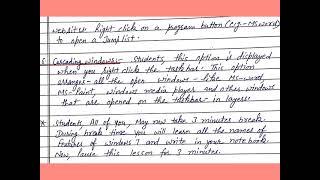 websites Right click on a program button (e.g-Ms word)
to open a Jumplist.
Cascading windows:- Students, this option is displayed
when you right click the taskbar. This option
arranges all the open windows - like Ms-word,
Ms-Paint, windows media player and other windows
that are opened on the taskbar in layers.
* Students, All of you, May now take 3 minutes break.
During break time you will learn all the names of
features of windows 7 and write in your note book.
Now, pause this lesson for 3 minutes.